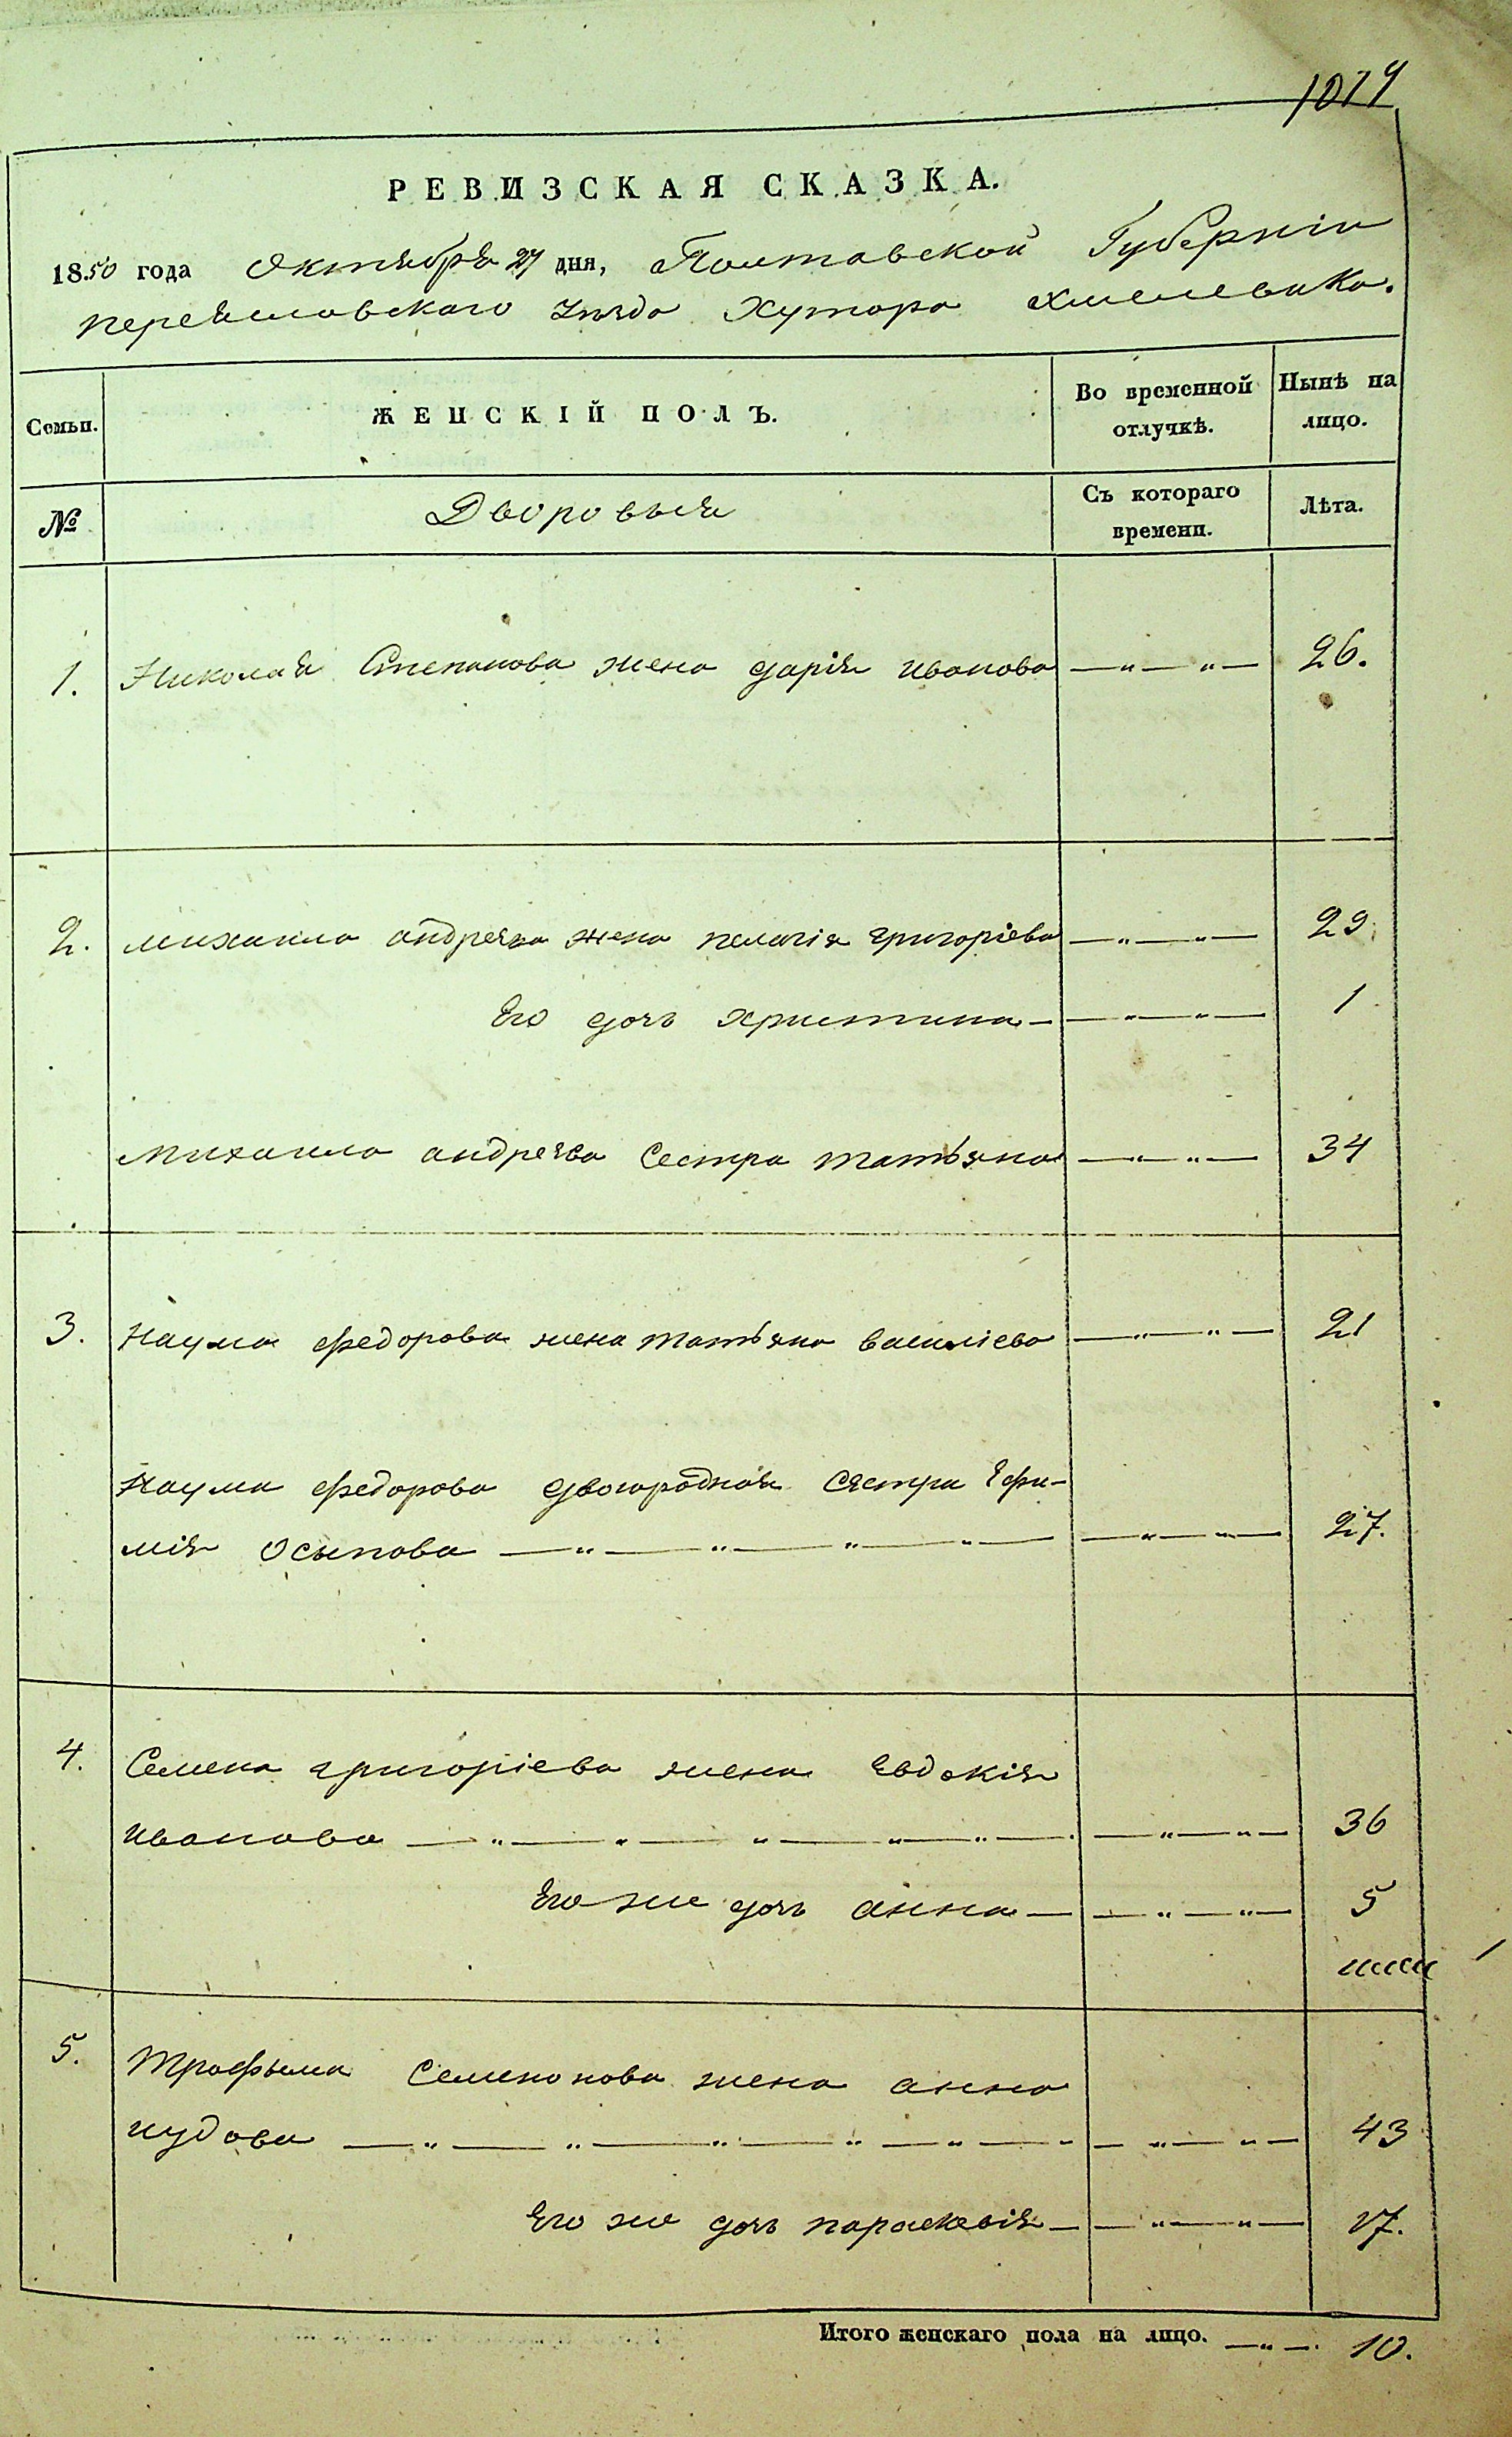 1014
РЕВИЗСКАЯ СКАЗКА.
1850 года Октября 27 дня, Полтавской Губерніи
переяславского уѣзда Хутора Хмелевика.
Семьи. ЖЕНСКІЙ ПОЛЪ. Во временной отлучкѣ. Нынѣ на лицо.
№ Дворовыя Съ котораго времени. Лѣта.
1. Николая Степанова жена дарія иванова —„—„— 26.
2. михаила андреева жена пелагія григоріева —„—„— 29
Его дочь христина —„—„— 1
михаила андреева сестра татьяна —„—„— 34
3. Наума федорова жена татьяна василіева —„—„— 21
Наума федорова двоюродная сестра Ефи-
мія осыпова —„—„—„—„— —„—„— 27.
4. Семена григоріева жена Евдокія
иванова —„—„—„—„—„— —„—„— 36
Его же дочь анна —„—„— 5
5. трофыма Семенонова жена анна
иудова —„—„—„—„—„— —„—„— 43
Его же дочь параскевія —„—„— 17.
Итого женскаго пола на лицо. —„—. 10.